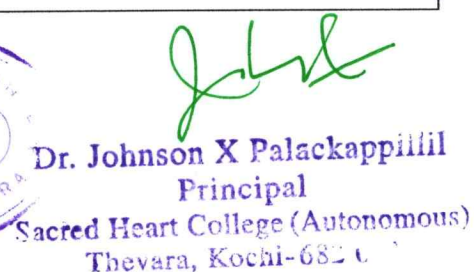 Dr. Johnson X Palackappillil
Principal
Sacred Heart College (Autonomous)
Thevara, Kochi-682